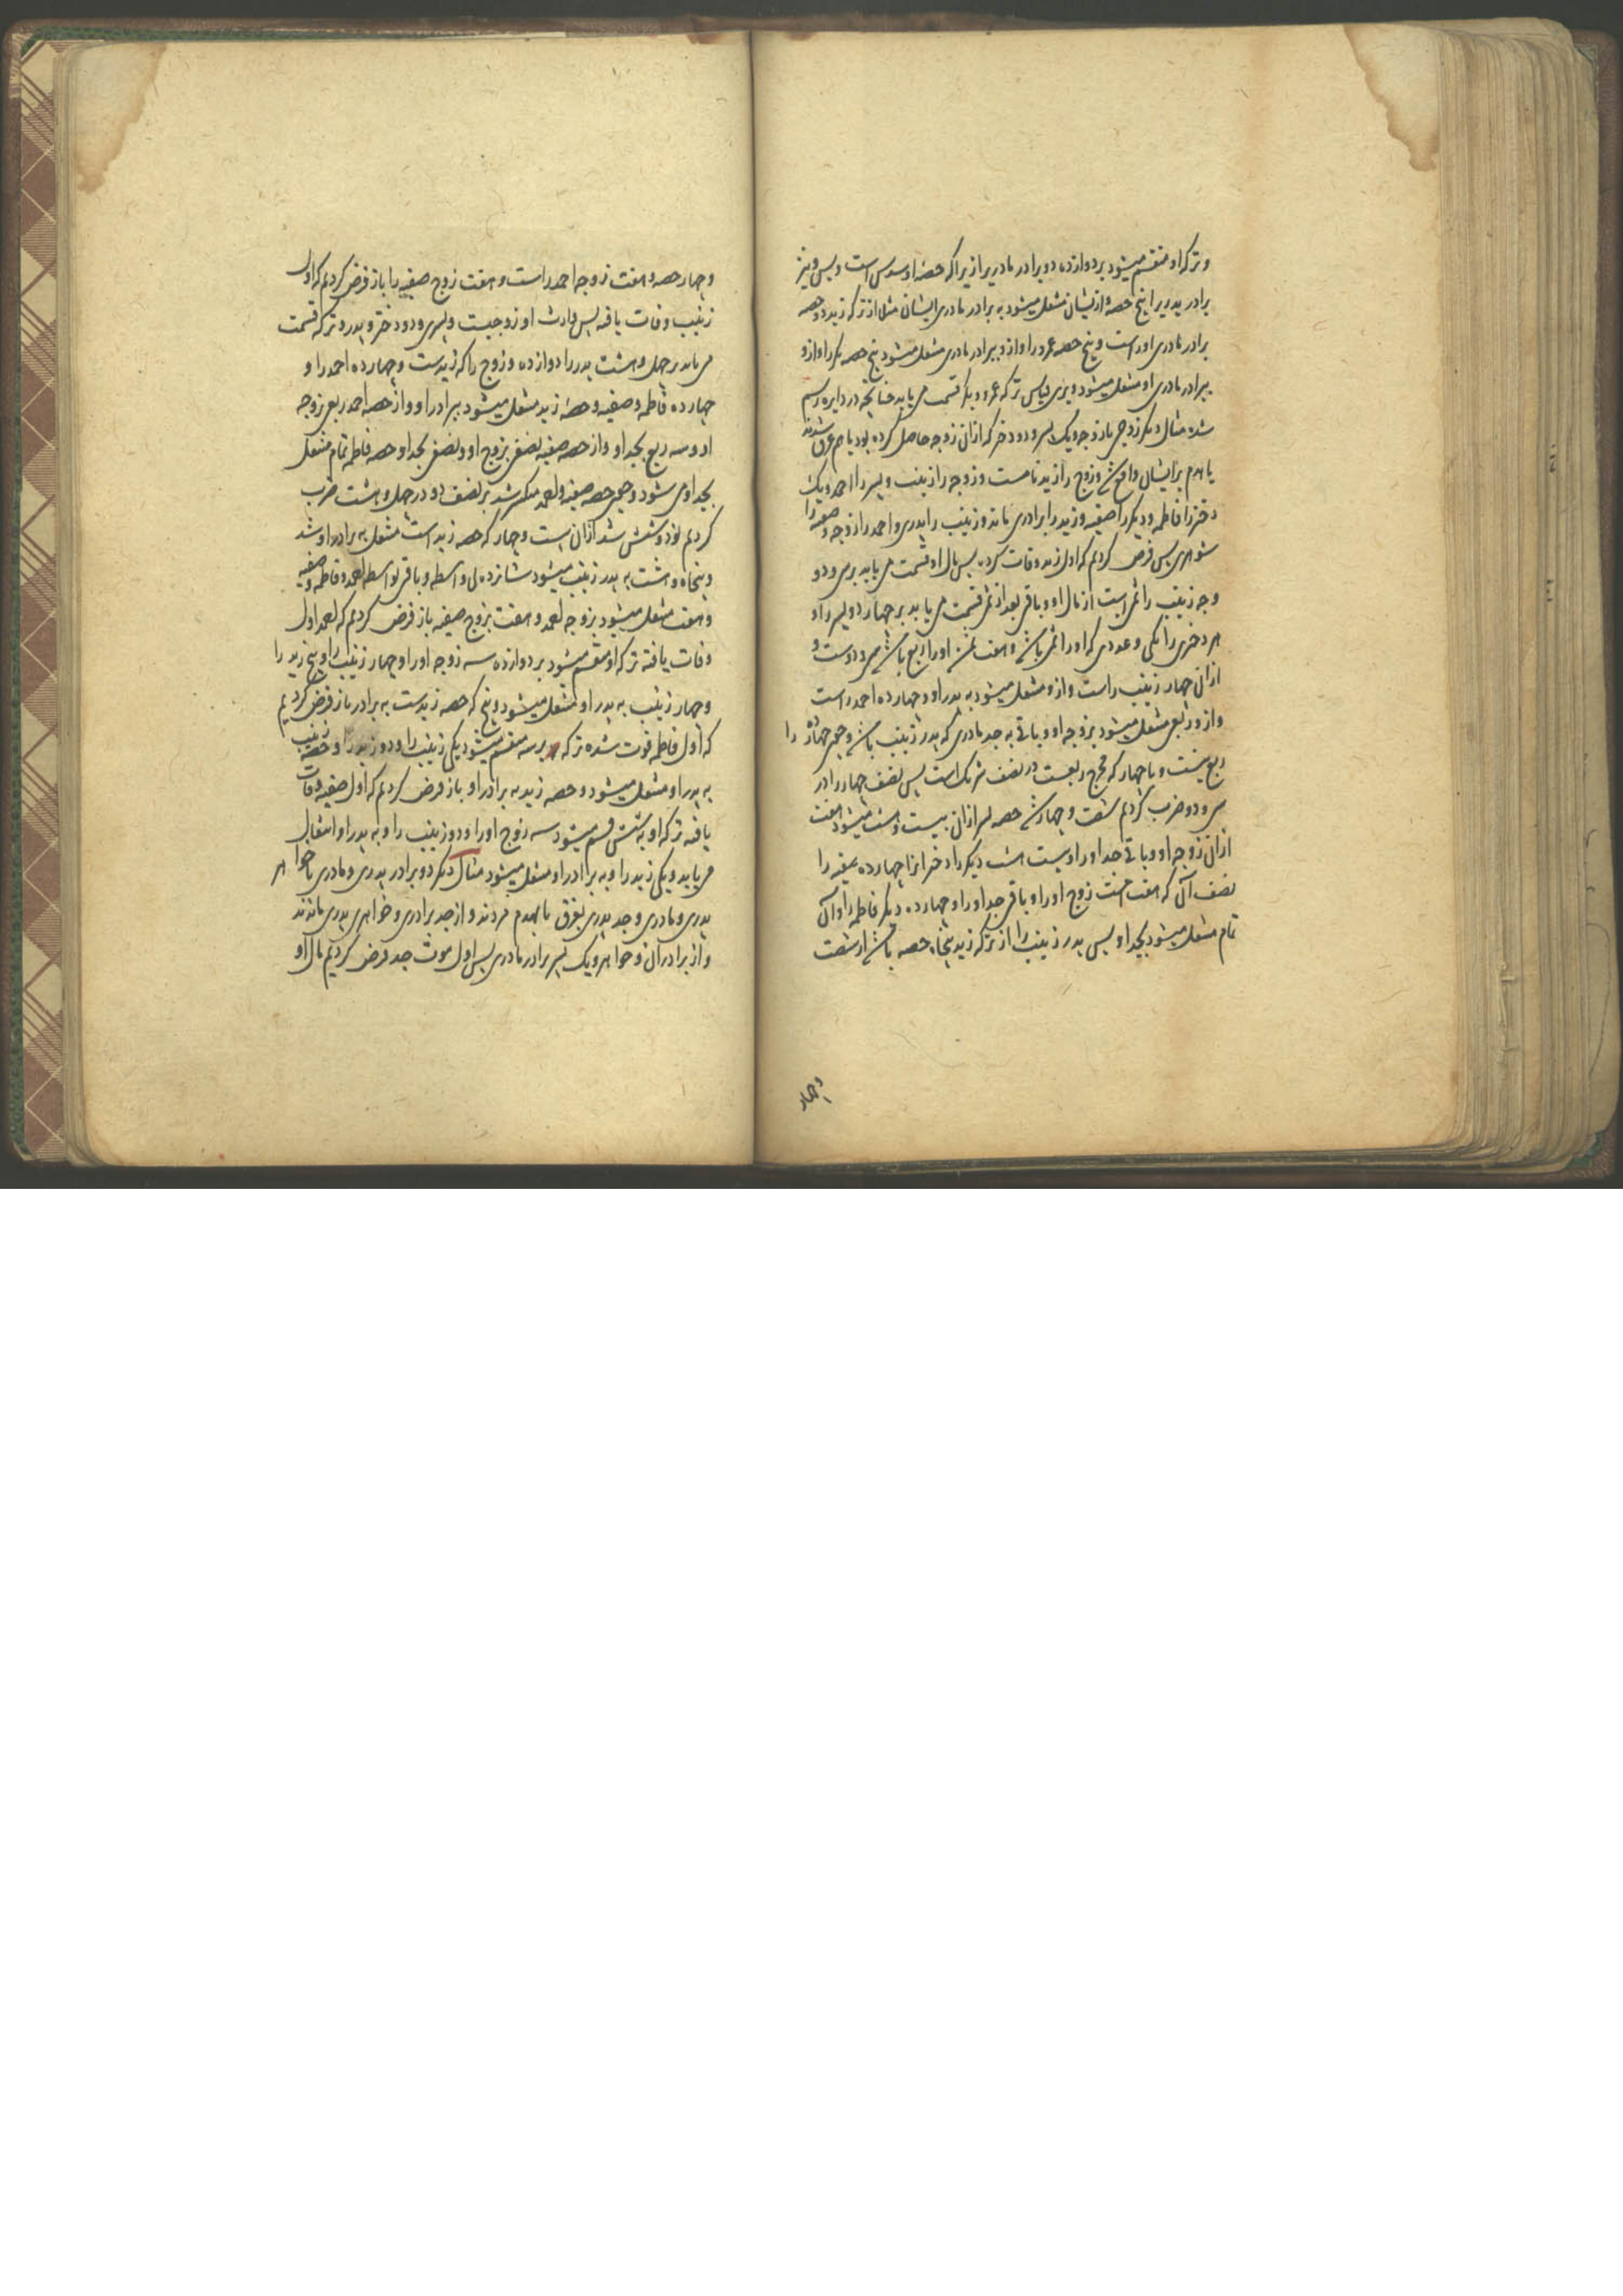 وترکه او منقسم میشود بر دوازده دو برادر مادریرا زیرا که حصهٔ او سدس است و بس و نیز
برادر پدریرا پنج حصه و ازیشان منتقل میشود به برادر مادری ایشان مثلا از ترکه زید دو حصه
برادر مادری اوراست و پنج حصه عمرو را و ازو ببرادر مادری منتقل میشود پنج حصه بکر را و ازو
ببرادر مادری او منتقل میشود و برین قیاس ترکه عمرو و بکر قسمت می یابد چنانچه در دایره رسم
شده مثال دیگر زوجی با زوجه و یک پسر و دو دختر که ازان زوجه حاصل کرده بود با هم غرق شدند
یا هدم برایشان واقع شد و زوج را زید نامست و زوجه را زینب و پسر را احمد و یک
دختر را فاطمه و دیگر را صفیه و زید را برادری ماند و زینب را پدری و احمد را زوجه و صفیه را
شوهری پس فرض کردیم که اول زید وفات کرده پس مال او قسمت می یابد بر سی و دو
وجه زینب را ثمن است از مال او و باقی بعد از ثمن قسمت می یابد بر چهار دو پسر را و
هر دختری را یکی و عددی که او را ثمن باشد و هفت ثمن او را ربع باشد سی و دوست و
ازان چهار زینب راست و ازو منتقل میشود به پدر او و چهارده احمد راست
و ازو ربعی منتقل میشود بزوجه او و باقی به جد مادری که پدر زینب باشد و چون چهارده را
ربع نیست و با چهار که مخرج ربعست در نصف شریک است پس نصف چهار را در
سی و دو ضرب کردیم شصت و چهار شد حصه پسر ازان بیست و هشت میشود هفت
ازان زوجه او و باقی جد او را و بیست هشت دیگر را دختران را چهارده صفیه را
نصف آن که هفت است زوج او را و باقی جد او را و چهارده دیگر فاطمه را و آن
تمام منتقل میشود بجد او پس پدر زینب را از ترکه زید پنجاه حصه باشد از شصت
وچهار
وچهار حصه و هفت زوجه احمد راست و هفت زوج صفیه را باز فرض کردیم که اول
زینب وفات یافه پس وارث او زوجیست و پسری و دو دختر و پدر و ترکه قسمت
می یابد بر چهل و هشت پدر را دوازده و زوج را که زیدست و چهارده احمد را و
چهارده فاطمه و صفیه و حصهٔ زید منتقل میشود ببرادر او و از حصه احمد ربع زوجه
او و سه ربع بجد او و از حصه صفیه نصفی بزوج او و نصفی بجد او و حصه فاطمه تمام منتقل
بجد او می شود و چون حصه صفیه و احمد منکسر شد بر نصف دو در چهل و هشت ضرب
کردیم نود و شش شد ازان بیست و چهار که حصه زید است منتقل به برادر او شد
و پنجاه و هشت به پدر زینب میشود شانزده بی واسطه و باقی بواسطه احمد و فاطمه و صفیه
و هفت منتقل میشود بزوجه احمد و هفت بزوج صفیه باز فرض کردیم که احمد اول
وفات یافته ترکه او منقسم میشود بر دوازده سه زوجه او را و چهار زینب را و پنج زید را
و چهار زینب به پدر او منتقل میشود و پنج که حصه زیدست به برادر باز فرض کردیم
که اول فاطمه فوت شده ترکه بر سه منقسم میشود یکی زینب را و دو زید را و حصه زینب
به پدر او منتقل میشود و حصه زید به برادر او باز فرض کردیم که اول صفیه وفات
یافته ترکه او به شش قسم میشود سه زوج او را و دو زینب را و به پدر او انتقال
می یابد و یکی زید را و به برادر او منتقل میشود مثال دیگر دو برادر پدری و مادری با خواهر
پدری و مادری و جد پدری بغرق یا بهدم مردند و از جد برادری و خواهری پدری ماندند
و از برادران و خواهر و یک پسر برادر مادری پس اول موت جد فرض کردیم مال او